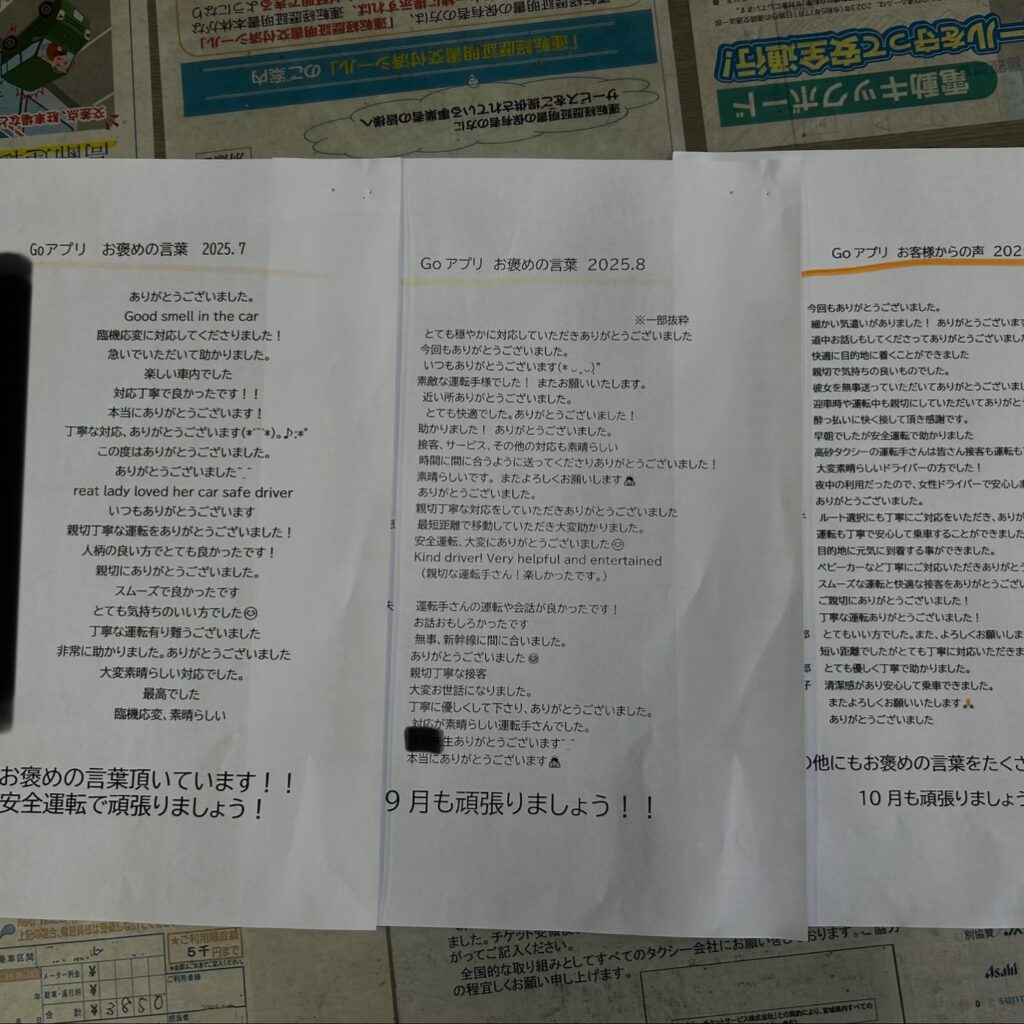 交差点、駐車場など
「運転経歴証明書交付済シール」
のご案内
運転経歴証明書の保有者の方に
サービスをご提供されている事業者の皆様へ
ールを守って安全通行!
電動キックボード
Goアプリ お褒めの言葉 2025.7
ありがとうございました。
Good smell in the car
臨機応変に対応してくださりました！
急いでいただいて助かりました。
楽しい車内でした
対応丁寧で良かったです！！
本当にありがとうございます！
丁寧な対応、ありがとうございます(*˘˘*)。♪:*°
この度はありがとうございました。
ありがとうございました^_^
reat lady loved her car safe driver
いつもありがとうございます
親切丁寧な運転をありがとうございました！
人柄の良い方でとても良かったです！
親切にありがとうございました。
スムーズで良かったです
とても気持ちのいい方でした😊
丁寧な運転有り難うございました
非常に助かりました。ありがとうございました
大変素晴らしい対応でした。
最高でした
臨機応変、素晴らしい
お褒めの言葉頂いています！！
安全運転で頑張りましょう！
Goアプリ お褒めの言葉 2025.8
※一部抜粋
とても穏やかに対応していただきありがとうございました
今回もありがとうございました。
いつもありがとうございます(*ᴗ͈ˬᴗ͈)”
素敵な運転手様でした！ またお願いいたします。
近い所ありがとうございました。
とても快適でした。ありがとうございました！
助かりました！ ありがとうございました。
接客、サービス、その他の対応も素晴らしい
時間に間に合うように送ってくださりありがとうございました！
素晴らしいです。またよろしくお願いします🙇
ありがとうございました。
親切丁寧な対応をしていただきありがとうございました
最短距離で移動していただき大変助かりました。
安全運転、大変にありがとうございました😊
Kind driver! Very helpful and entertained
（親切な運転手さん！楽しかったです。）
運転手さんの運転や会話が良かったです！
お話おもしろかったです
無事、新幹線に間に合いました。
ありがとうございました😊
親切丁寧な接客
大変お世話になりました。
丁寧に優しくして下さり、ありがとうございました。
対応が素晴らしい運転手さんでした。
生ありがとうございます^_^
本当にありがとうございます🙇
9月も頑張りましょう！！
Goアプリ お客様からの声 202
今回もありがとうございました。
細かい気遣いがありました！ ありがとうございます
道中お話しもしてくださってありがとうございまし
快適に目的地に着くことができました
親切で気持ちの良いものでした。
彼女を無事送っていただいてありがとうございまし
迎車時や運転中も親切にしていただいてありがと
酔っ払いに快く接して頂き感謝です。
早朝でしたが安全運転で助かりました
高砂タクシーの運転手さんは皆さん接客も運転も
大変素晴らしいドライバーの方でした！
夜中の利用だったので、女性ドライバーで安心しま
ありがとうございました。
ルート選択にも丁寧にご対応をいただき、ありが
運転も丁寧で安心して乗車することができました
目的地に元気に到着する事ができました。
ベビーカーなど丁寧にご対応いただきありがとう
スムーズな運転と快適な接客をありがとうござい
ご親切にありがとうございました！
丁寧な運転ありがとうございました！
とてもいい方でした。また、よろしくお願いしま
短い距離でしたがとても丁寧に対応いただきま
とても優しく丁寧で助かりました。
清潔感があり安心して乗車できました。
またよろしくお願いいたします🙏
ありがとうございました
の他にもお褒めの言葉をたくさ
10月も頑張りましょう
★ご利用限度額
5千円まで
乗車区間
メーター料金 ¥
駐車・通行料 ¥
合計 ¥ 3820
ご利用者様
担当者
ました。チケット受領後、
がってご記入ください。
全国的な取り組みとしてすべてのタクシー会社にお願いを
の程宜しくお願い申し上げます。
別協賛/
Asahi